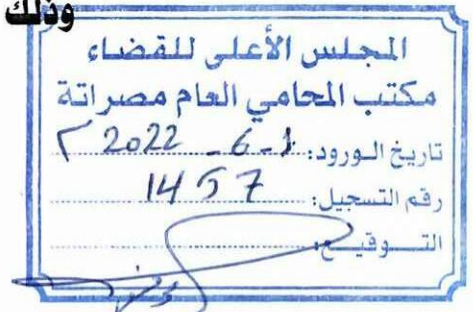 وذلك
المجلس الأعلى للقضاء
مكتب المحامي العام مصراتة
تاريخ الورود: 1-6-2022 م
رقم التسجيل: 1457
التوقيع: